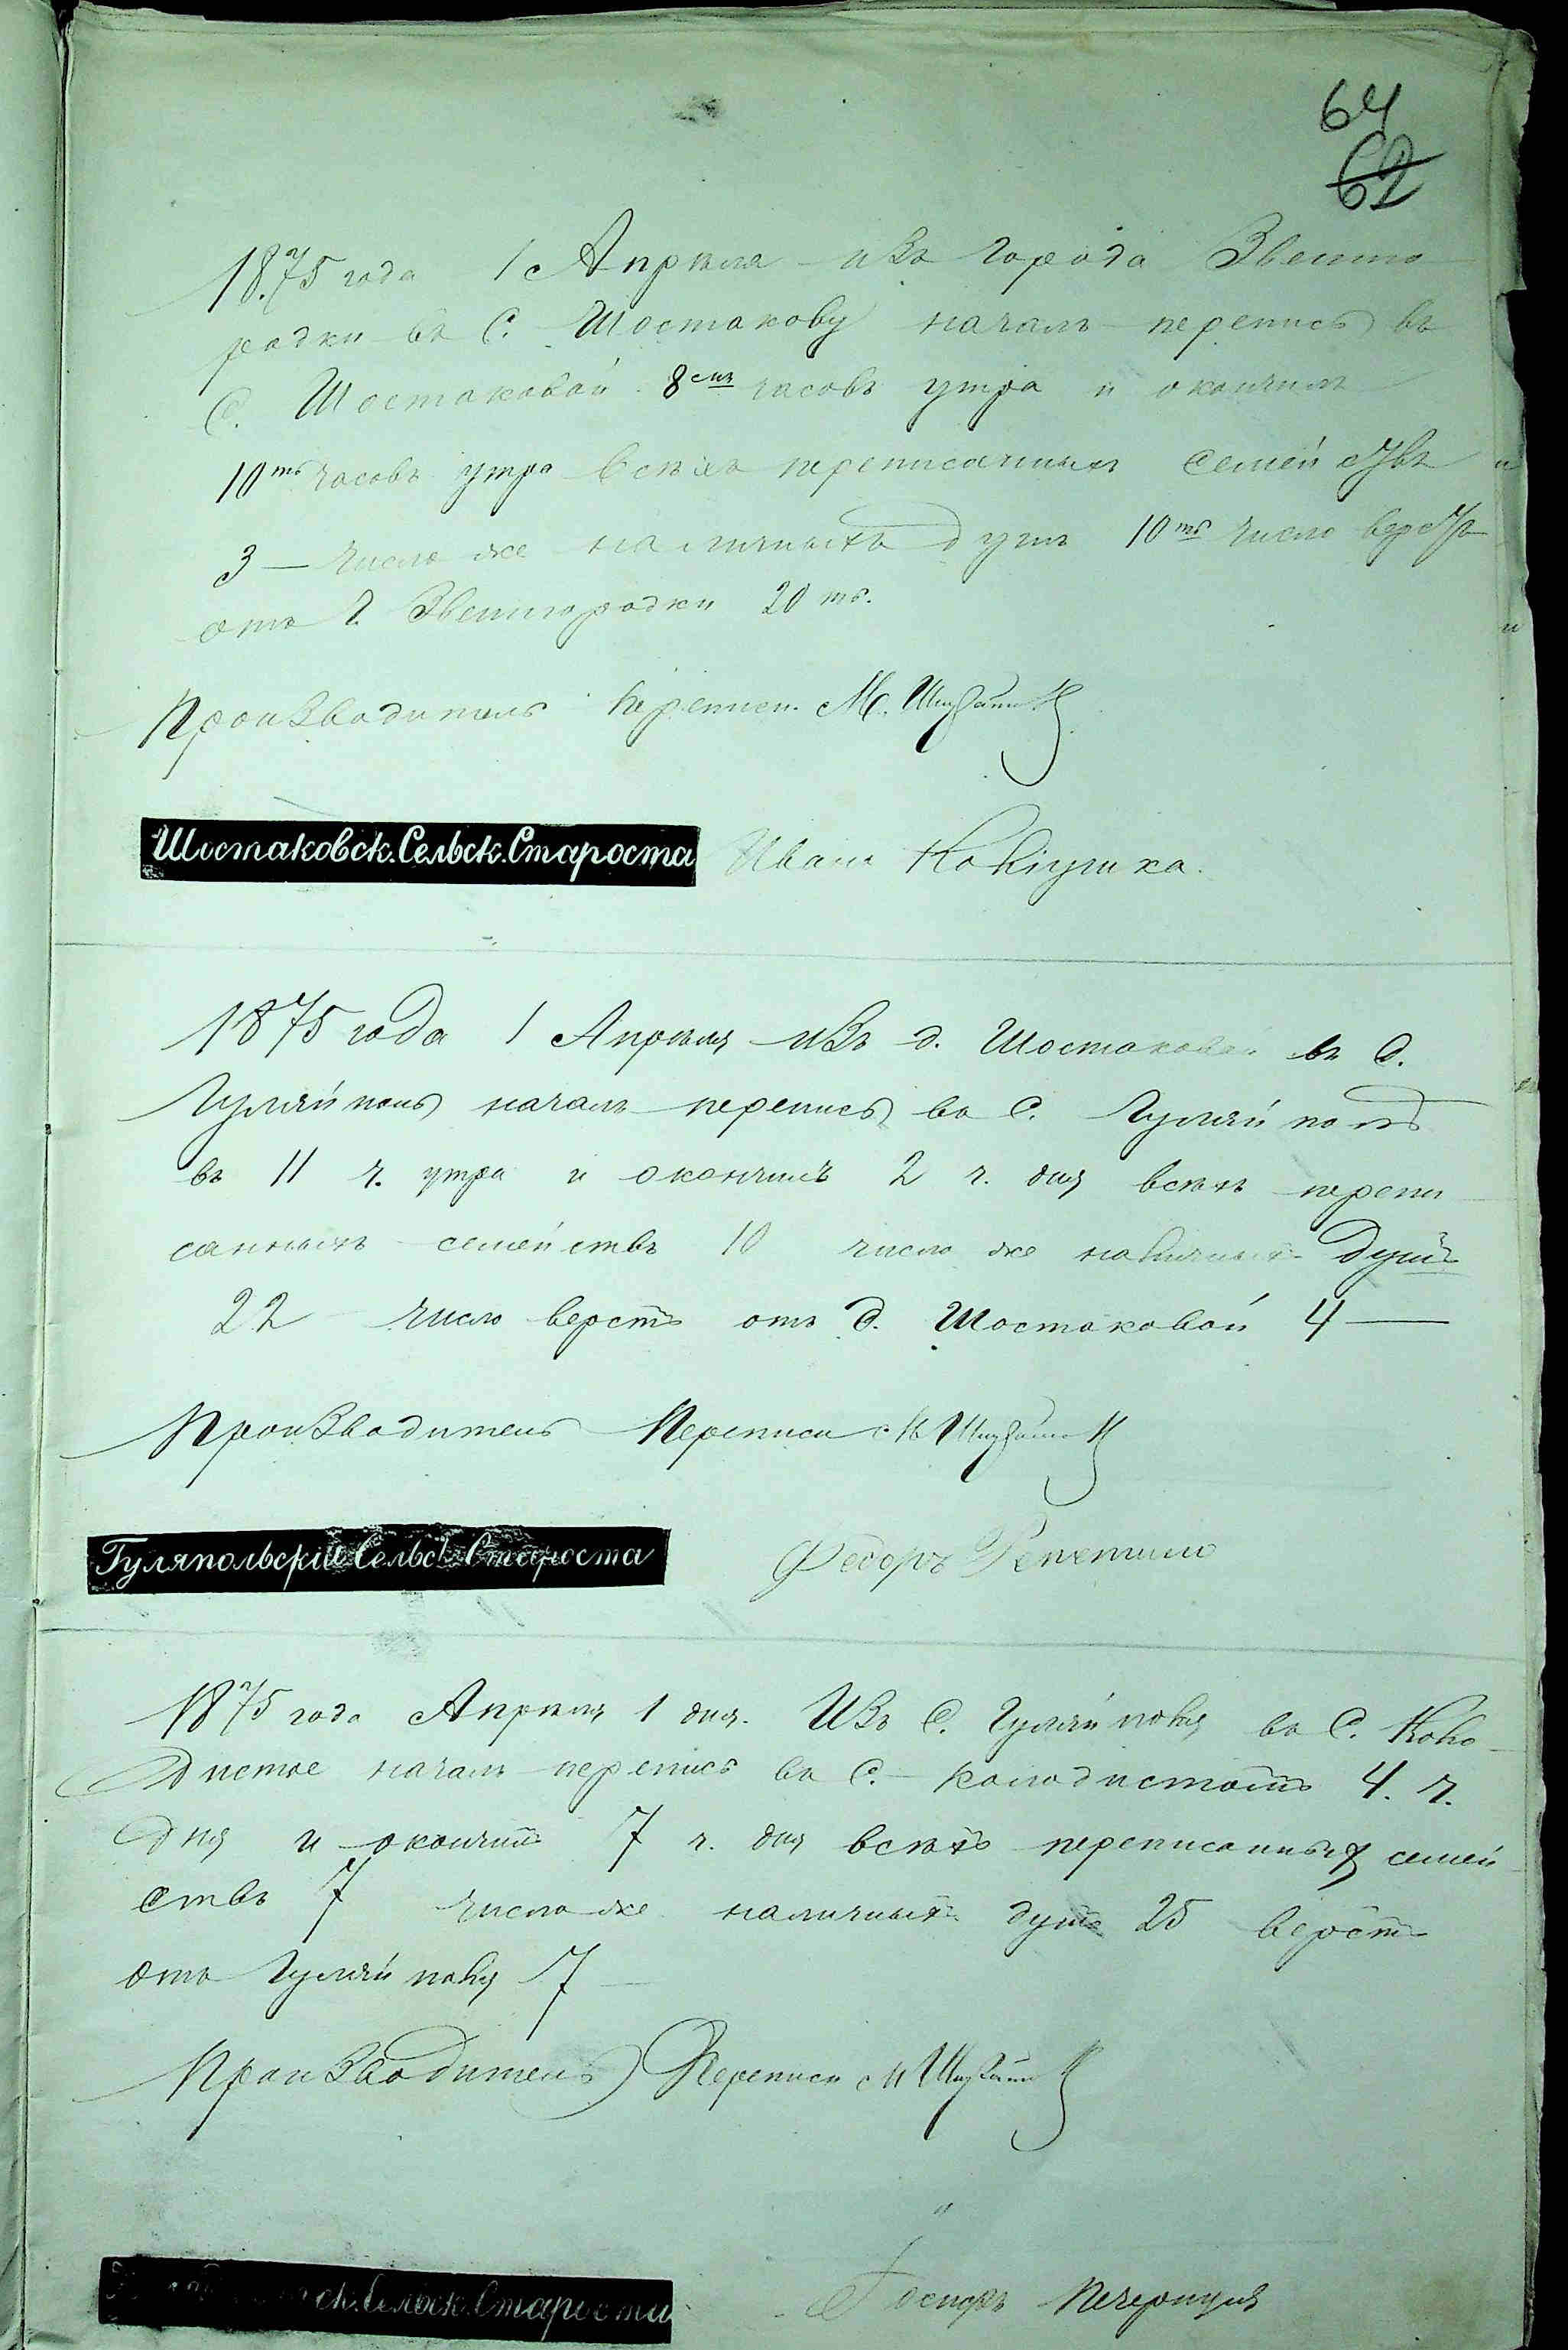 64
62
1875 года 1 Апрѣля изъ города Звениго
родки въ С. Шостакову началъ перепись въ
С. Шостаковой 8смъ часовъ утра и окончилъ
10ть часовъ утра всѣхъ переписанныхъ семействъ
3 — число же наличныхъ душъ 10ть число верстъ
отъ г. Звенигородки 20 ть.
Производитель переписи М.
Шостаковск. Сельск. Староста Иванъ
1875 года 1 Апрѣля изъ д. Шостаковой въ С.
Гуляйполь началъ перепись въ С. Гуляйполѣ
въ 11 ч. утра и окончилъ 2 ч. дня всѣхъ перепи
санныхъ семействъ 10 число же наличныхъ душъ
22 число верстъ отъ д. Шостаковой 4 —
Производитель Переписи М
Гуляпольскій Сельск. Староста Федоръ
1875 года Апрѣля 1 дня. Изъ С. Гуляйполя въ С. Коло
дистое началъ перепись въ С. Колодистомъ 4. ч.
дня и окончилъ 7 ч. дня всѣхъ переписанныхъ семей
ствъ 7 число же наличныхъ душъ 25 верстъ
отъ Гуляйполя 7 —
Производитель Переписи М
ск. Сельск. Староста